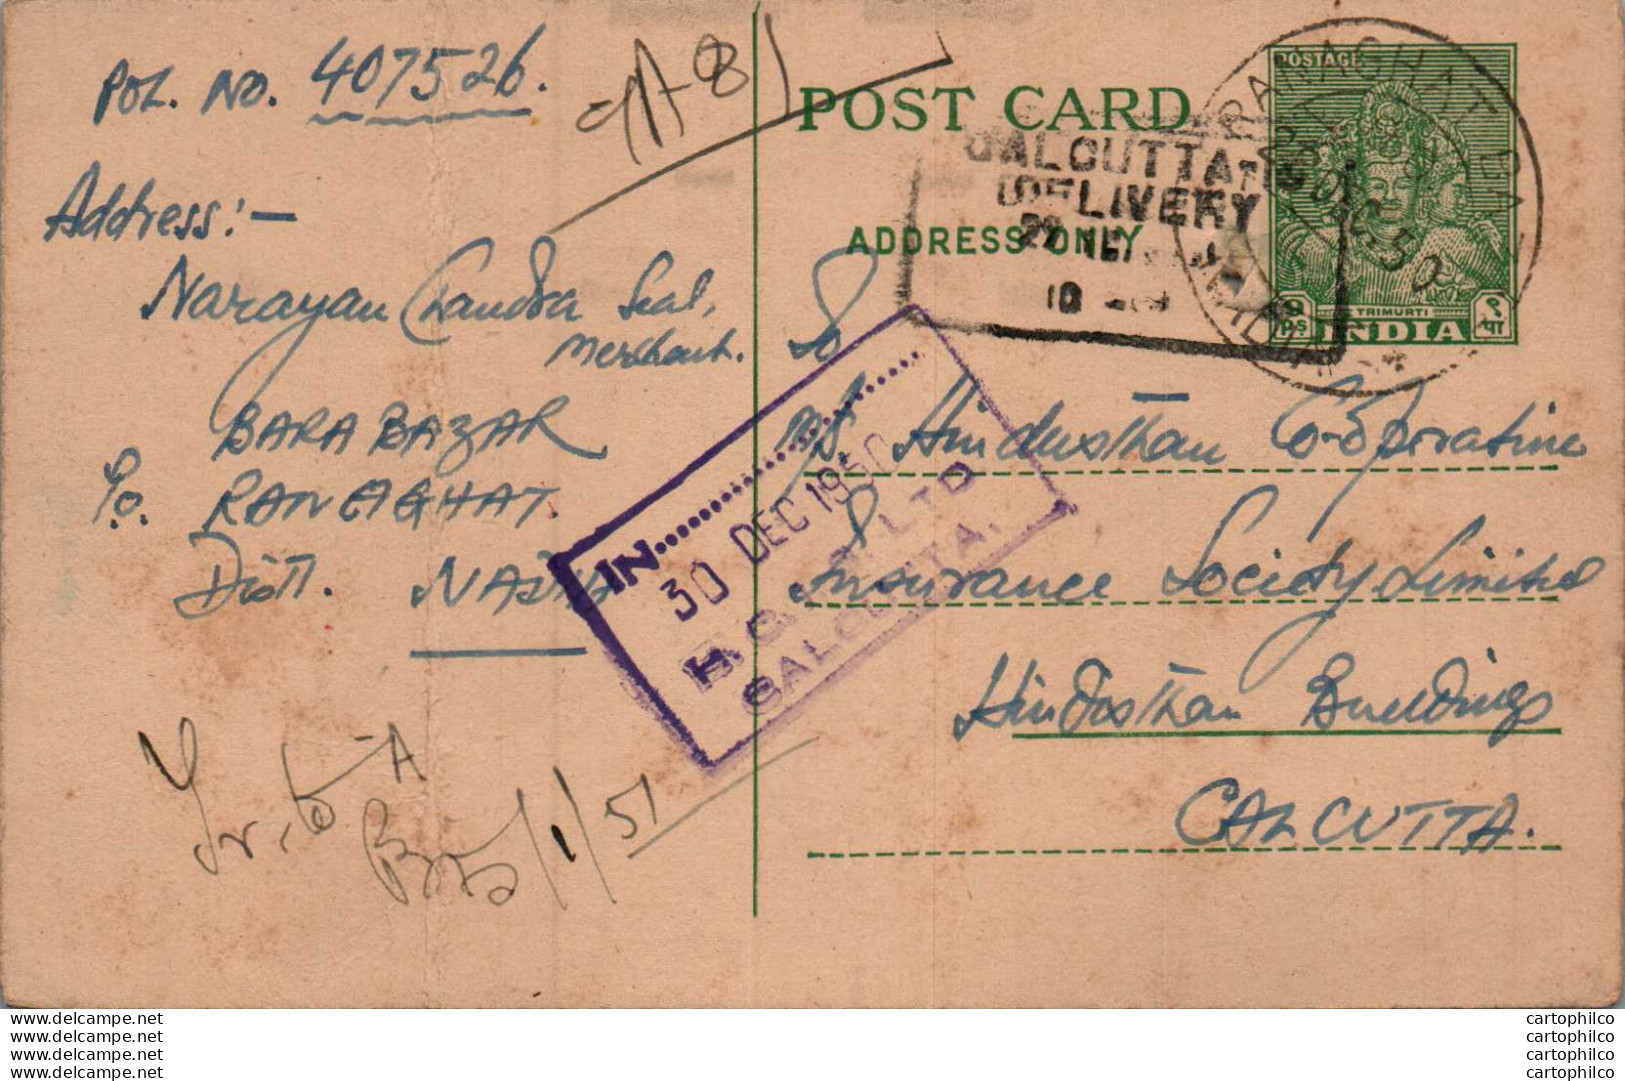 POL. NO. 407526.
Address:-
Narayan Chandra Seal,
Merchant.
BARA BAZAR
P.O. RANAGHAT.
Distt. NADIA
5/1/51
POST CARD
ADDRESS ONLY
CALCUTTA
DELIVERY
RANAGHAT
POSTAGE
9 Ps
TRIMURTI
९ पा
INDIA
IN
30 DEC 1950
LTD
CALCUTTA.
To
M/S. Hindusthan Co-operative
Insurance Society Limited
Hindusthan Buildings
CALCUTTA.
www.delcampe.net
www.delcampe.net
www.delcampe.net
www.delcampe.net
cartophilco
cartophilco
cartophilco
cartophilco